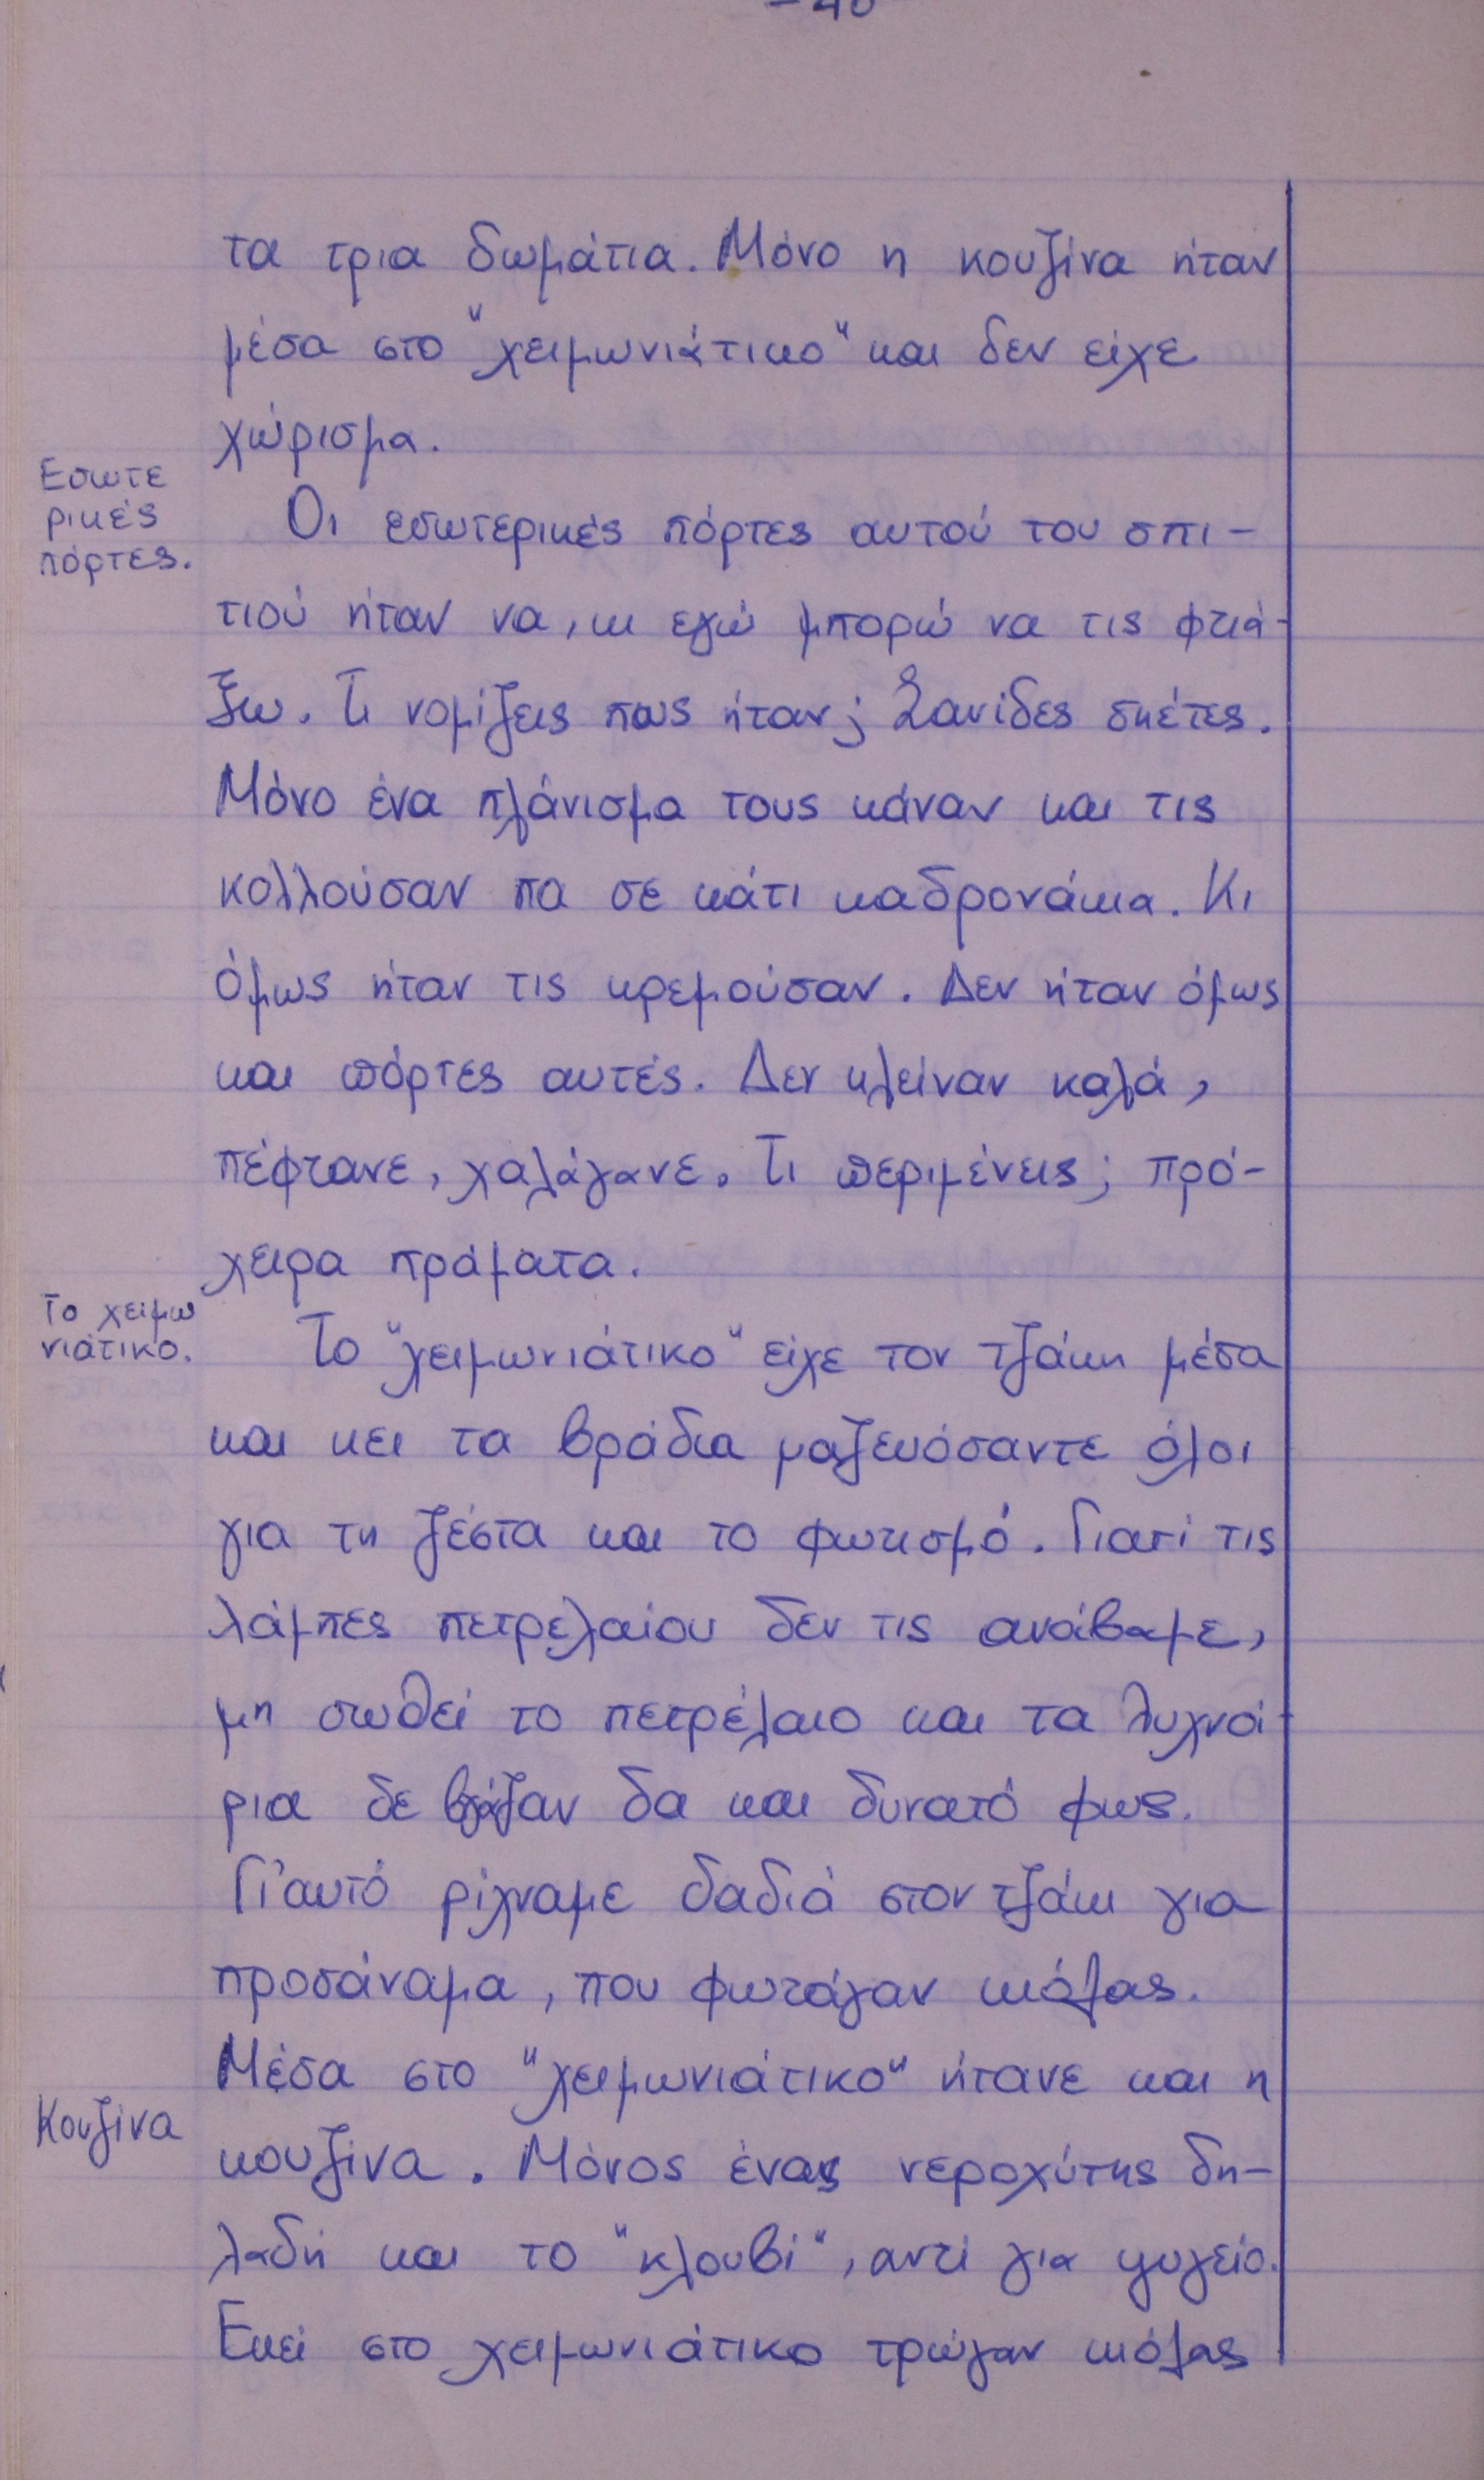 -40
τα τρια δωμάτια. Μόνο η κουζίνα ήταν
μέσα στο "χειμωνιάτικο" και δεν είχε
χώρισμα.
Εσωτε
ρικές
πόρτες.
Οι εσωτερικές πόρτες αυτού του σπι-
τιού ήταν να, κι εγώ μπορώ να τις φτιά-
ξω. Τι νομίζεις πως ήταν; Σανίδες σκέτες.
Μόνο ένα πλάνισμα τους κάναν και τις
κολλούσαν πα σε κάτι καδρονάκια. Κι
όμως ήταν τις κρεμούσαν. Δεν ήταν όμως
και πόρτες αυτές. Δεν κλείναν καλά,
πέφτανε, χαλάγανε. Τι περιμένεις; πρό-
χειρα πράματα.
Το χειμω
νιάτικο.
Το "χειμωνιάτικο" είχε τον τζάκη μέσα
και κει τα βράδια μαζευόσαντε όλοι
για τη ζέστα και το φωτισμό. Γιατί τις
λάμπες πετρελαίου δεν τις ανάβαμε,
μη σωθεί το πετρέλαιο και τα λυχνά-
ρια δε βγάζαν δα και δυνατό φως.
Γι'αυτό ρίχναμε δαδιά στον τζάκι για
προσάναμα, που φωτάγαν κιόλας.
Μέσα στο "χειμωνιάτικο" ήτανε και η
Κουζίνα
κουζίνα. Μόνος ένας νεροχύτης δη-
λαδή και το "κλουβί", αντί για ψυγείο.
Εκεί στο χειμωνιάτικο τρώγαν κιόλας